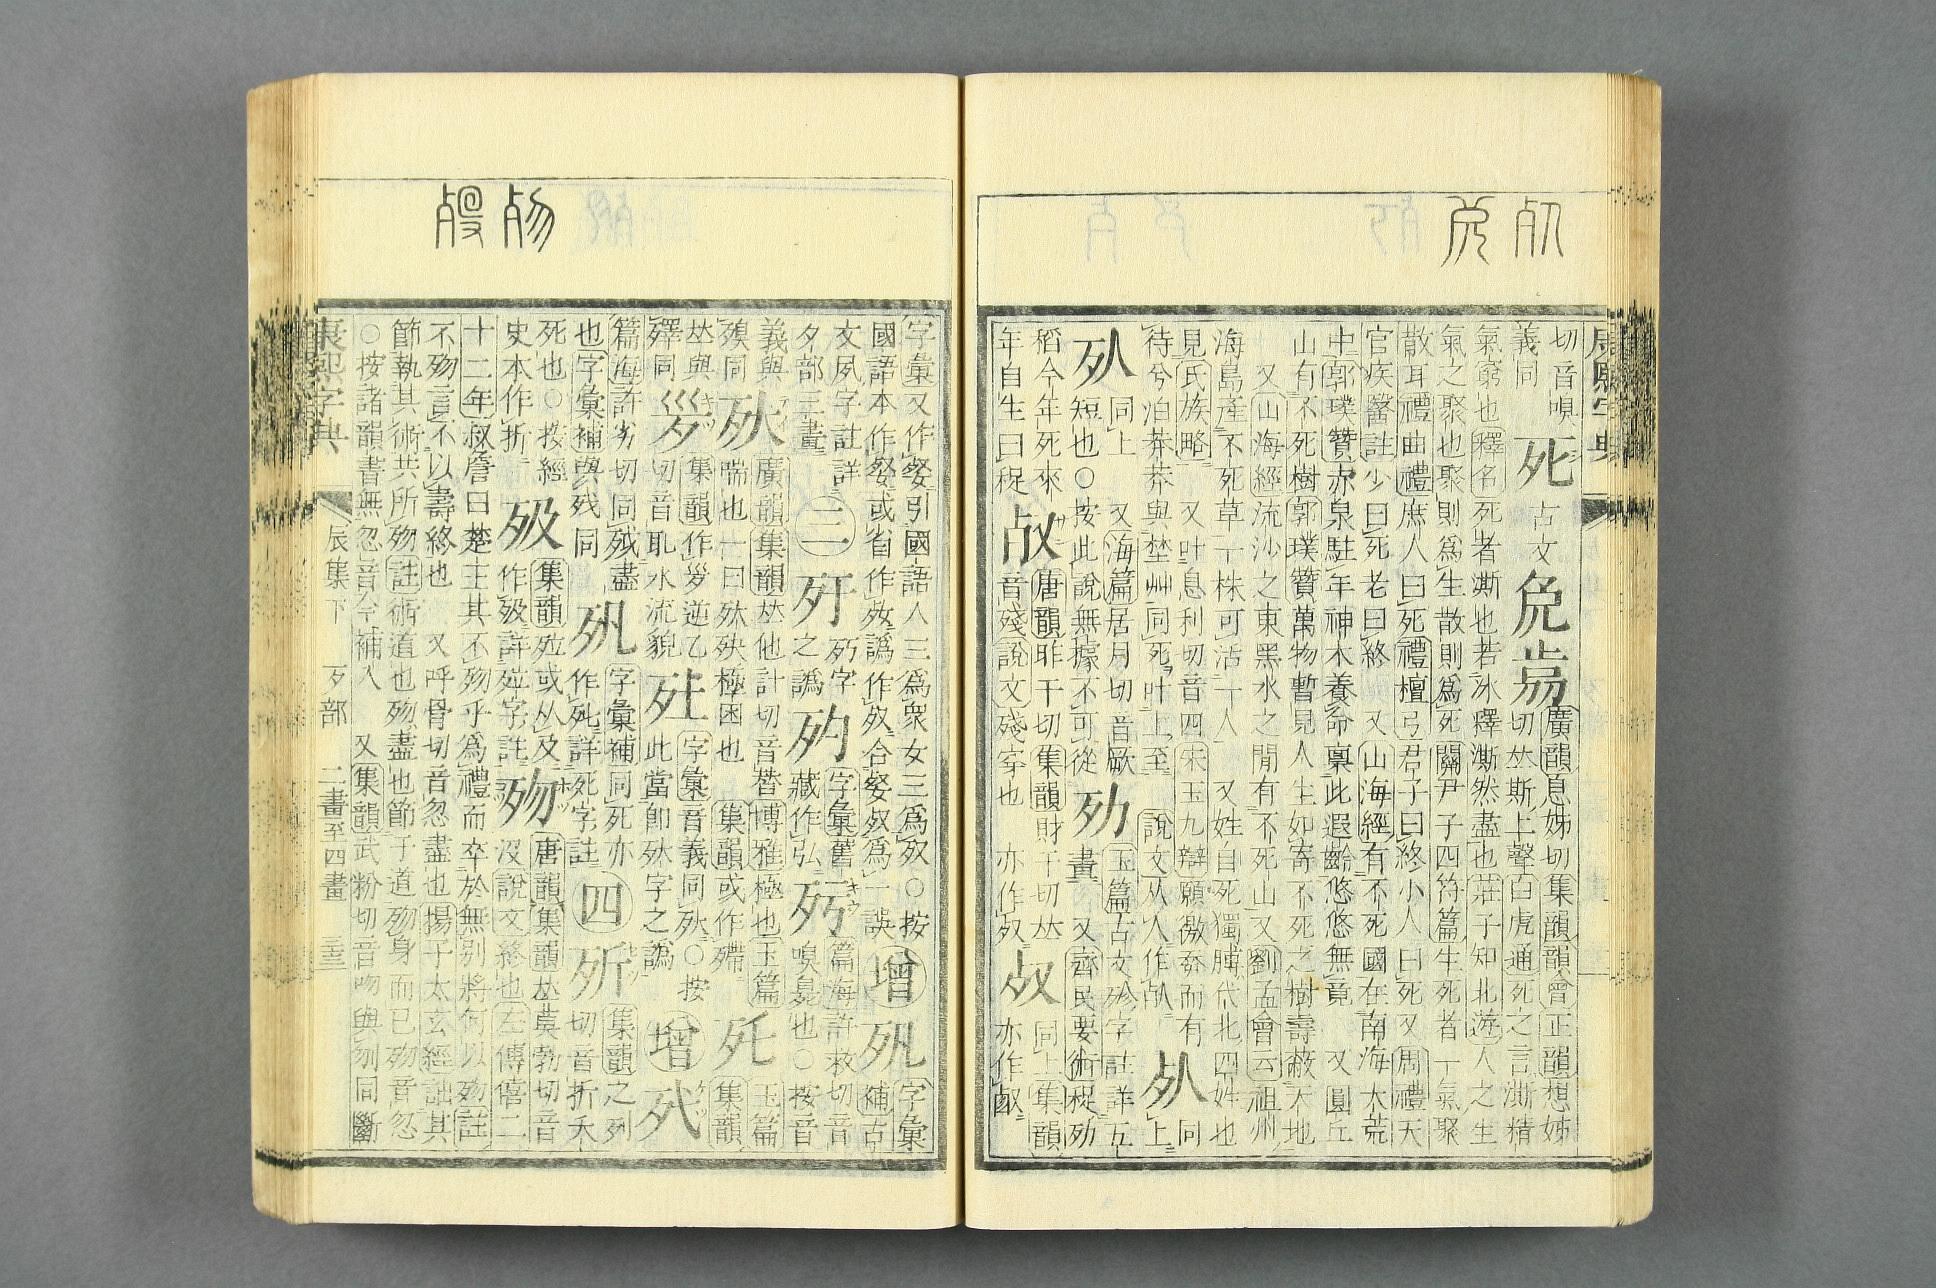 切音嗅 死 古文 𠒁 𣦸 廣韻息姊切集韻韻會正韻想姊
義同 切𠀤斯上聲白虎通死之言澌精
氣窮也釋名死者澌也若冰釋澌然盡也莊子知北遊人之生
氣之聚也聚則爲生散則爲死關尹子四符篇生死者一氣聚
散耳禮曲禮庶人曰死禮檀弓君子曰終小人曰死又周禮天
官疾醫註少曰死老曰終 又山海經有不死國在南海大荒
中郭璞贊赤泉駐年神木養命稟此遐齡悠悠無竟 又圓丘
山有不死樹郭璞贊萬物暫見人生如寄不死之樹壽蔽天地
又山海經流沙之東黑水之閒有不死山又劉孟會云祖州
海島產不死草一株可活一人 又姓自死獨膊代北四姓也
見氏族略 又叶息利切音四宋玉九辯願徼幸而有 同
待兮泊莽莽與埜艸同死叶上至 說文从人作 上
同上 又海篇居月切音厥 玉篇古文殄字註詳五
畫 又齊民要術秜
短也○按此說無據不可從
稻今年死來 唐韻昨干切集韻財干切𠀤 同上集韻
年自生曰秜 音殘說文殘穿也 亦作 亦作
字彙又作粲引國語人三爲衆女三爲奴○按 增 字彙
國語本作粲或省作㚣譌作奴合粲奴爲一誤 補古
文夙字註詳 三 歹 字 字彙舊 篇海許救切音
夕部三畫 之譌 藏作弘 嗅臭也○按音
義與 廣韻集韻𠀤他計切音替博雅極也玉篇 玉篇
殠同 喘也一曰 殃極困也 集韻或作殢 死 集韻
𠀤與 集韻作 逆乙 字彙音義同 ○按 增
殬同 切音耴水流貌 此當卽 字之譌
篇海許劣切同 盡 字彙補同死亦 四 集韻之列
也字彙補與残同 作 詳死字註 切音折夭
死也○按經 集韻 或从及 歾 唐韻集韻𠀤莫勃切音
史本作折 作 詳 字註 沒說文終也左傳僖二
十二年叔詹曰楚王其不歾乎爲禮而卒於無別將何以歾註
不歾言不以壽終也 又呼骨切音忽盡也揚子太玄經詘其
節執其術共所歾註術道也歾盡也節子道歾身而已歾音忽
○按諸韻書無忽音今補入 又集韻武粉切音吻與刎同斷
康熙字典 辰集下 歹部 二畫至四畫 三
康熙字典